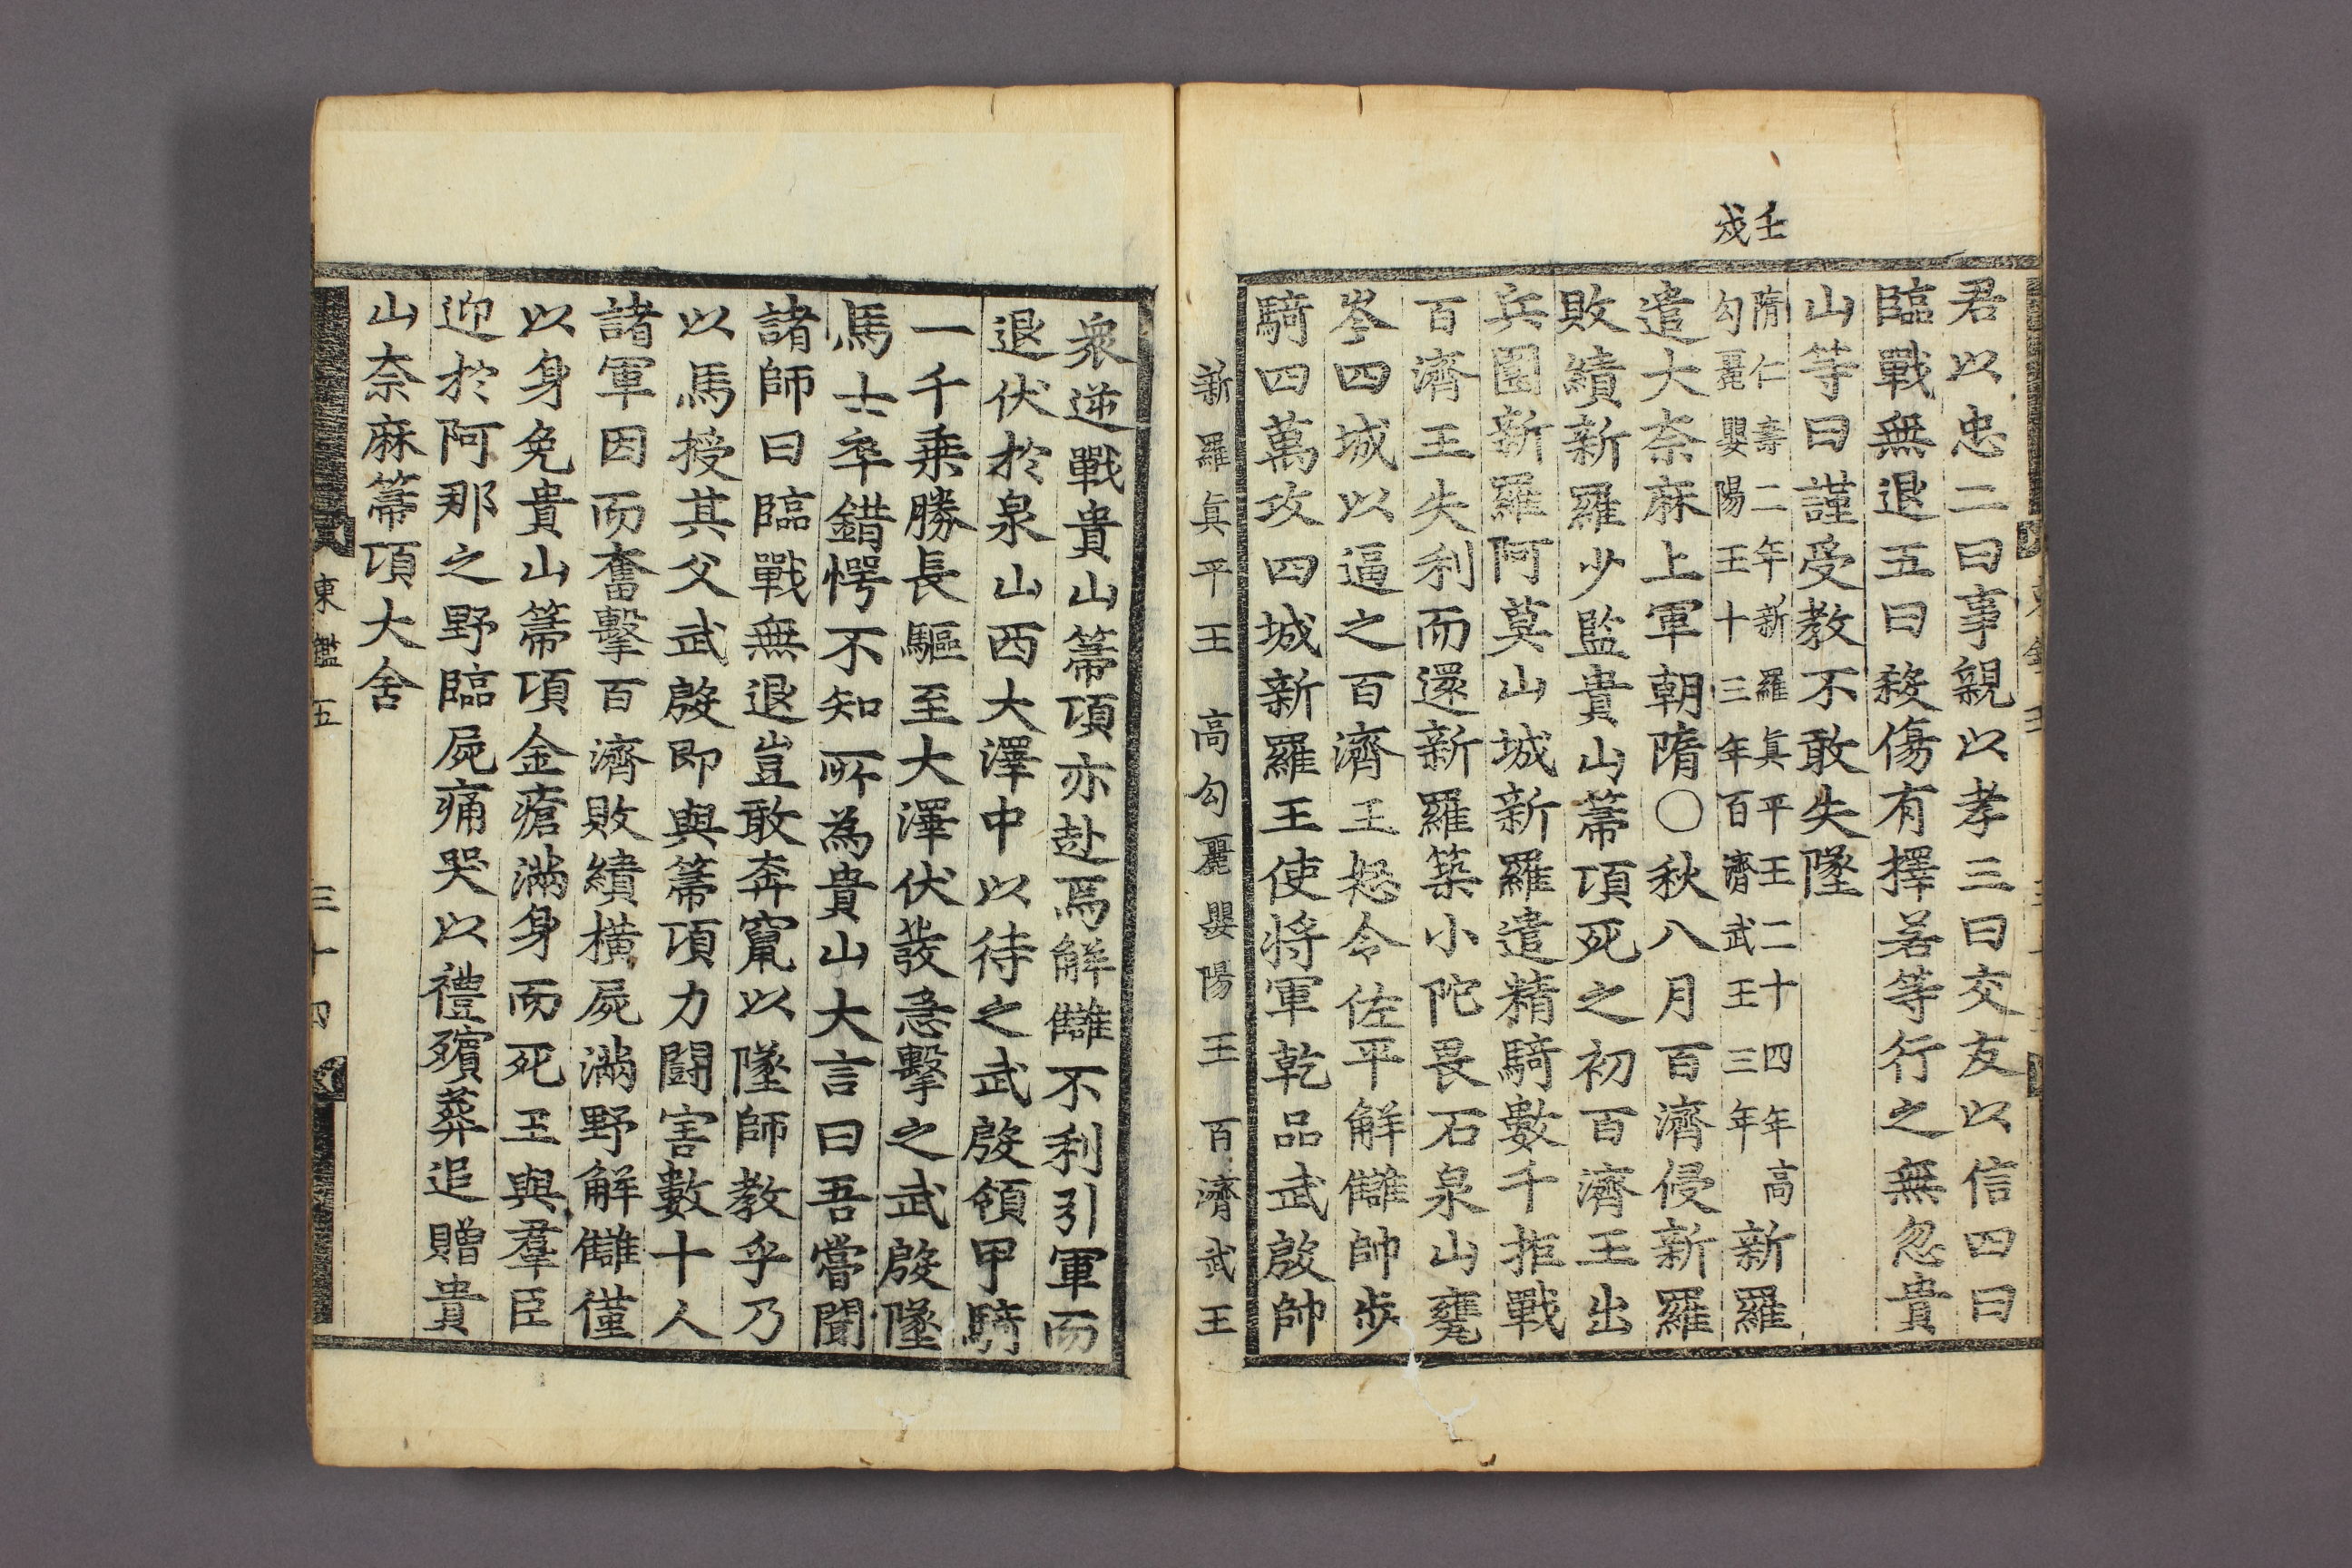 壬戌
君以忠二曰事親以孝三曰交友以信四曰
臨戰無退五曰殺傷有擇若等行之無忽貴
山等曰謹受教不敢失墜
隋仁壽二年新羅眞平王二十四年高
勾麗嬰陽王十三年百濟武王三年
新羅
遣大奈麻上軍朝隋〇秋八月百濟侵新羅
敗績新羅少監貴山箒項死之初百濟王出
兵圍新羅阿莫山城新羅遣精騎數千拒戰
百濟王失利而還新羅築小陀畏石泉山甕
岑四城以逼之百濟王怒令佐平解讎帥步
騎四萬攻四城新羅王使將軍乾品武殷帥
新羅眞平王 高勾麗嬰陽王 百濟武王
衆逆戰貴山箒項亦赴焉解讎不利引軍而
退伏於泉山西大澤中以待之武殷領甲騎
一千乗勝長驅至大澤伏發急擊之武殷墜
馬士卒錯愕不知所為貴山大言曰吾嘗聞
諸師曰臨戰無退豈敢奔竄以墜師教乎乃
以馬授其父武殷即與箒項力鬪害數十人
諸軍因而奮擊百濟敗績橫屍滿野解讎僅
以身免貴山箒項金瘡滿身而死王與羣臣
迎於阿那之野臨屍痛哭以禮殯葬追贈貴
山奈麻箒項大舍
東鑑五 三十四